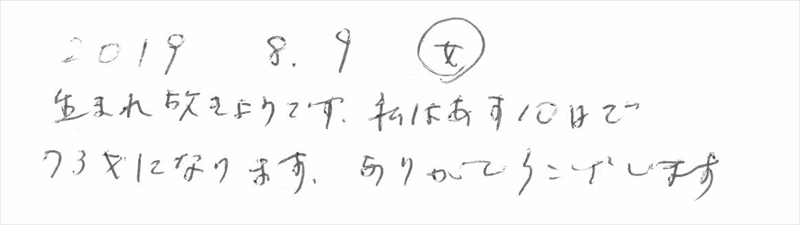 2019 8.9 女
生まれ故きよりです. 私はあす10日で
73才になります. ありがとうございします